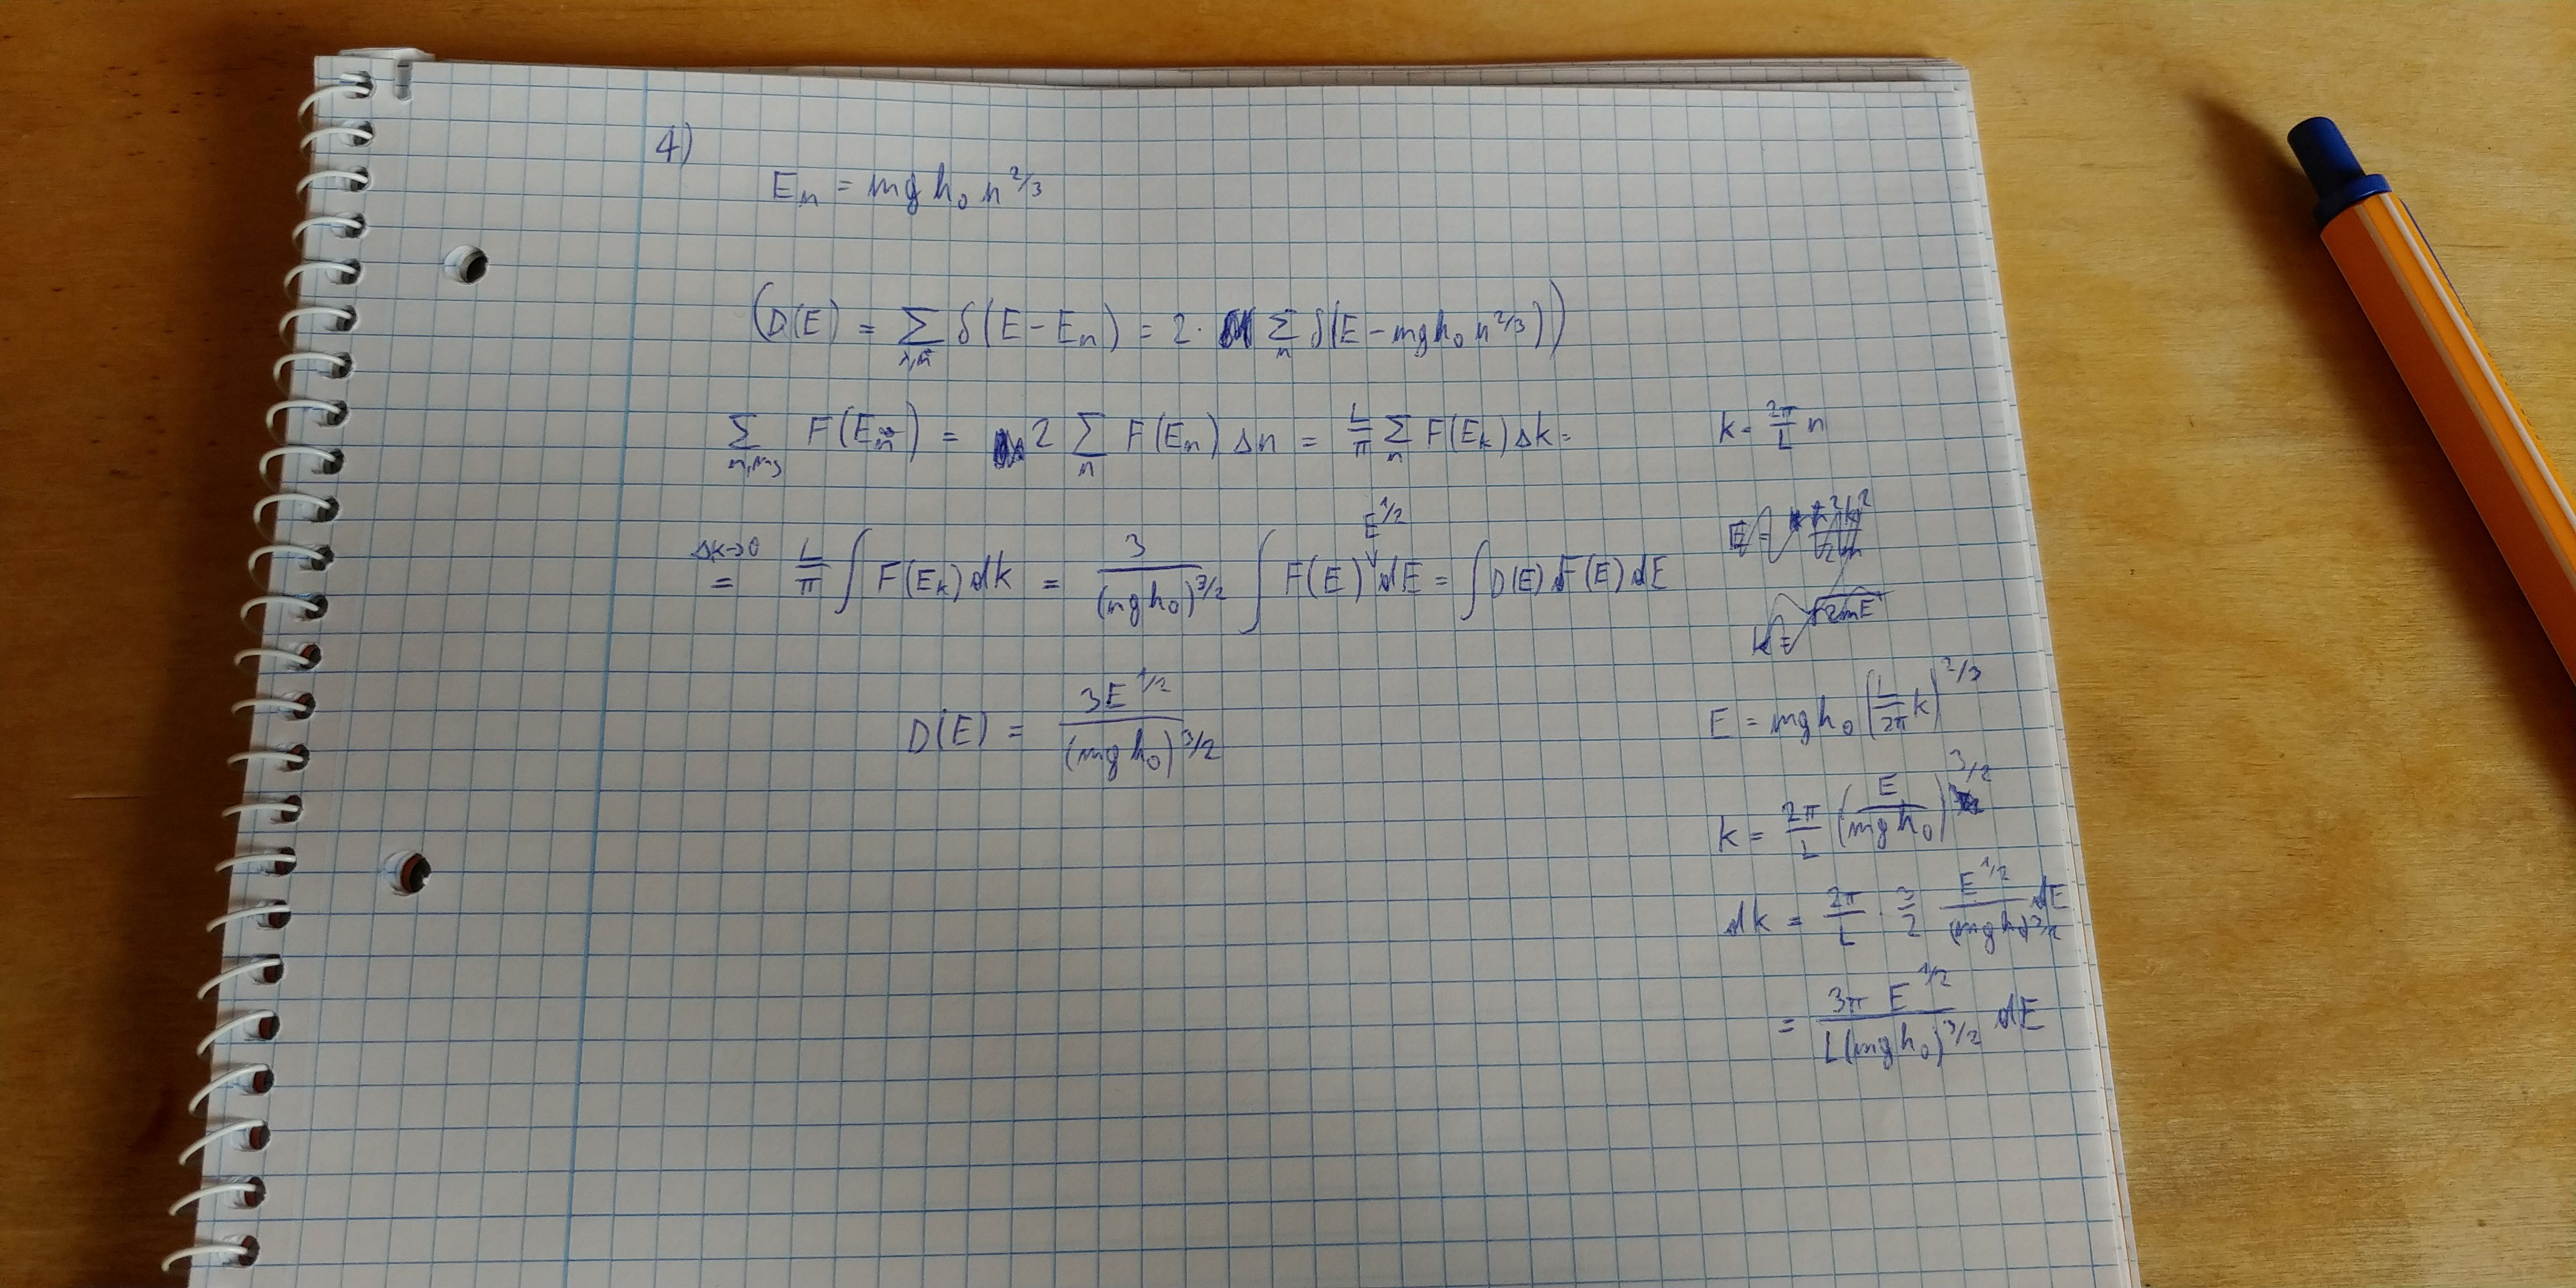 4)
E_n = mgh_0 n^{2/3}
(D(E) = Σ δ(E - E_n) = 2 · Σ_n δ(E - mgh_0 n^{2/3}))
Σ_{n,m_s} F(E_{n⃗}) = 2 Σ_n F(E_n) Δn = L/π Σ_n F(E_k) Δk =
k = 2π/L n
Δk→0 = L/π ∫ F(E_k) dk = 3/(mgh_0)^{3/2} ∫ F(E) E^{1/2} dE = ∫ D(E) F(E) dE
D(E) = 3E^{1/2}/(mgh_0)^{3/2}
E = mgh_0 (L/2π k)^{2/3}
k = 2π/L (E/mgh_0)^{3/2}
dk = 2π/L · 3/2 E^{1/2}/(mgh_0)^{3/2} dE
= 3π E^{1/2}/L(mgh_0)^{3/2} dE